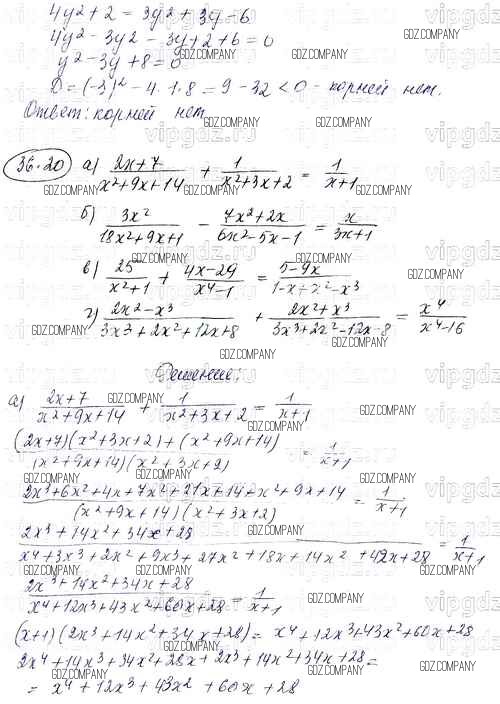 4y² + 2 = 3y² + 3y - 6
4y² - 3y² - 3y + 2 + 6 = 0
y² - 3y + 8 = 0
D = (-3)² - 4·1·8 = 9 - 32 < 0 - корней нет.
Ответ: корней нет
36.20 а) (2x+7)/(x²+9x+14) + 1/(x²+3x+2) = 1/(x+1)
б) 3x²/(18x²+9x+1) - (7x²+2x)/(6x²-5x-1) = x/(3x+1)
в) 25/(x²+1) + (4x-29)/(x⁴-1) = (5-9x)/(1-x+x²-x³)
г) (2x²-x³)/(3x³+2x²+12x+8) + (2x²+x³)/(3x³+2x²-12x-8) = x⁴/(x⁴-16)
Решение:
а) (2x+7)/(x²+9x+14) + 1/(x²+3x+2) = 1/(x+1)
((2x+7)(x²+3x+2)+(x²+9x+14))/((x²+9x+14)(x²+3x+2)) = 1/(x+1)
(2x³+6x²+4x+7x²+21x+14+x²+9x+14)/((x²+9x+14)(x²+3x+2)) = 1/(x+1)
(2x³+14x²+34x+28)/(x⁴+3x³+2x²+9x³+27x²+18x+14x²+42x+28) = 1/(x+1)
(2x³+14x²+34x+28)/(x⁴+12x³+43x²+60x+28) = 1/(x+1)
(x+1)(2x³+14x²+34x+28) = x⁴+12x³+43x²+60x+28
2x⁴+14x³+34x²+28x+2x³+14x²+34x+28 =
= x⁴+12x³+43x²+60x+28